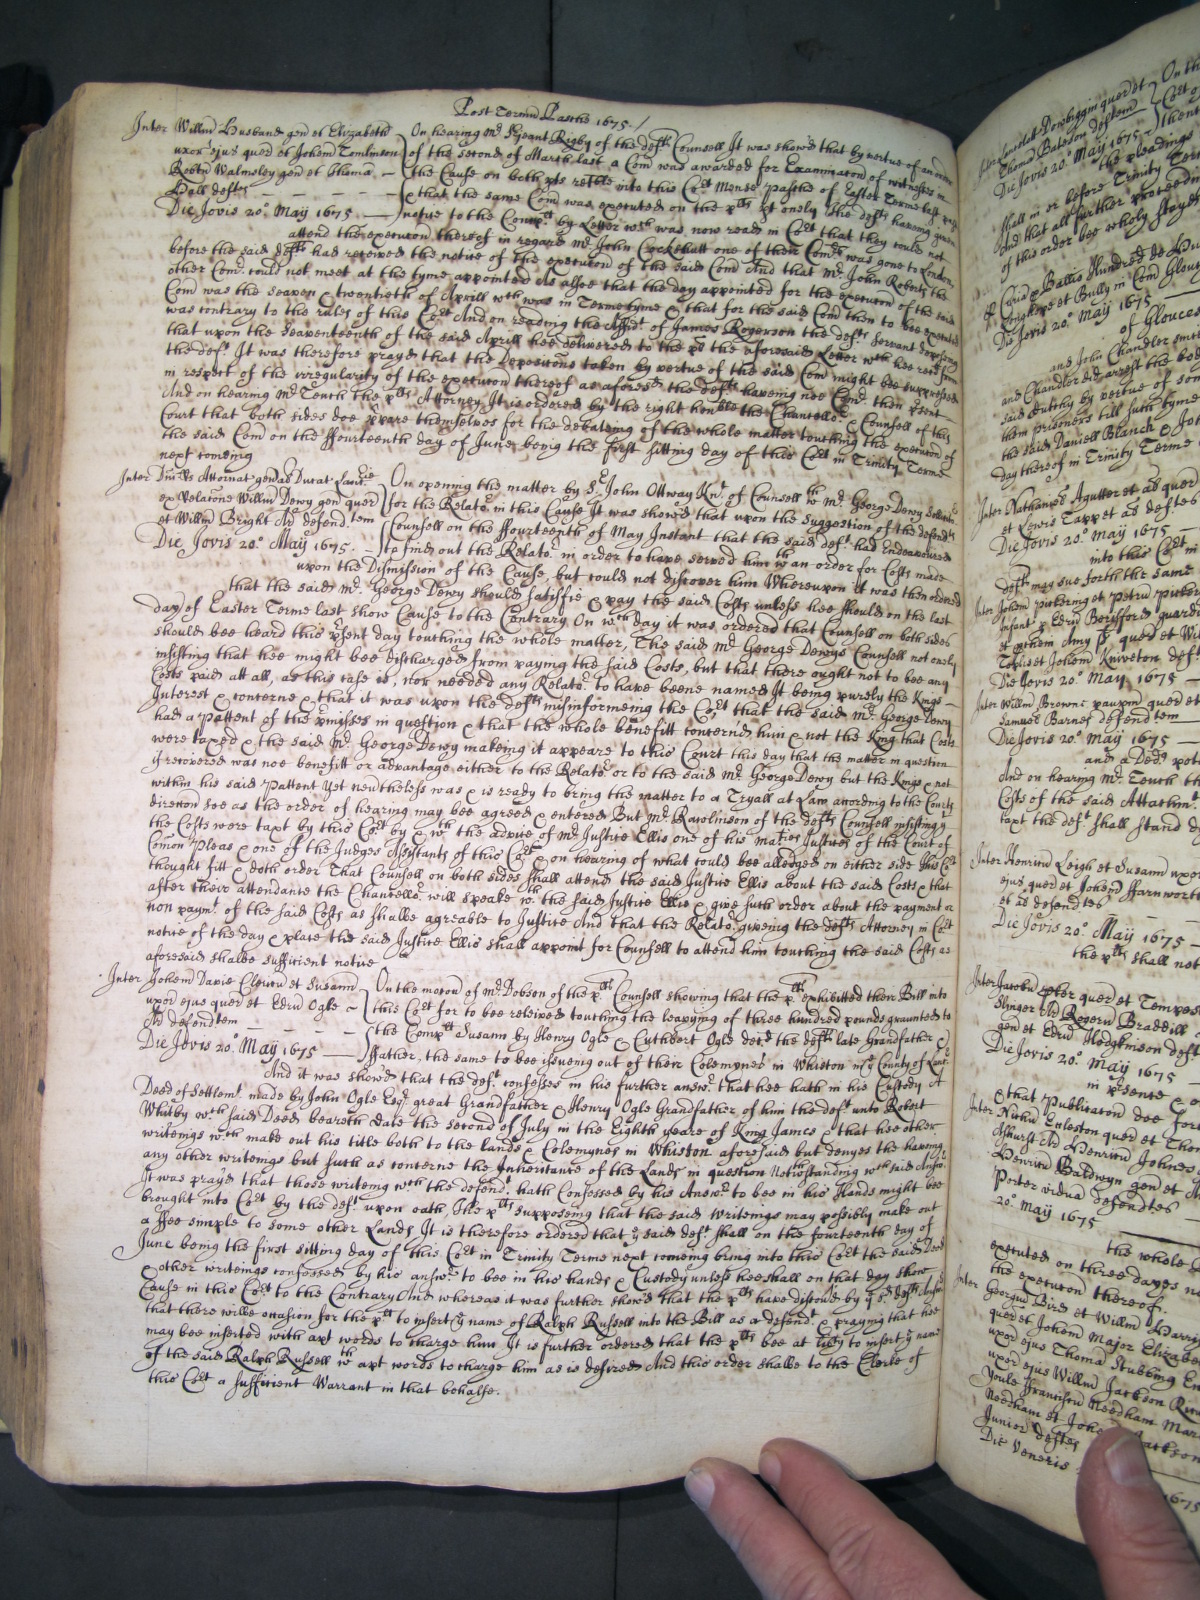 Post Termin Pasche 1675 /
Inter Willm Husband gen et Elizabeth
uxor ejus quer et Johem Tomlinson
Robtu Walmsley gen et Thoma
Hall deftes
Die Jovis 20o May 1675
On hearing Mr Sjeant Rigby of the defts Counsell It was shewd that by vertue of an order
of the second of March last a Com was awarded for Examinacon of witnesses in
the Cause on both pts retble into this Cort Mense Pasche of Easter Terme last past
that the same Com was executed on the plts pt onely the defts haveing given
notice to the Compt by Letter wch was now read in Cort that they could not
attend the execucon thereof in regard Mr John Crockehall one of their Comrs was gone to London
before the said defts had received the notice of the execucon of the said Com And that Mr John Roberts the
other Comr could not meet at the tyme appointed As alsoe that the day appointed for the execucon of the said
Com was the seaven & twentieth of Aprill wch was in Terme tyme & that for the said Com then to bee executed
was contrary to the rules of this Cort And on reading the Affidt of James Rogerson the defts servant deposeing
that upon the seaventeenth of the said Aprill hee delivered to the plt the aforesaid Letter wch hee recd from
the deft It was therefore prayd that the Deposicons taken by vertue of the said Com might bee suppressed
in respect of the irregularity of the execucon thereof as aforesd the defts haveing noe Comr then psent
And on hearing Mr Teuth the plts Attorney It is ordered by the right honble the Chancellor & Counsell of this
Court that both sides doe ppare themselves for the debateing of the whole matter touching the execucon of
the said Com on the ffourteenth day of June being the first sitting day of this Cort in Trinity Terme
next comeing
Inter Dni Rs Attornat genal Ducat Lancrie
ex Relacone Willm Dewy gen quer
et Willm Bright Ar defend tem
Die Jovis 20o May 1675
On opening the matter by Sr John Ottway Knt of Counsell wth Mr George Dewy Sollicitor
for the Relator in this Cause It was shewd that upon the suggestion of the defendts
Counsell on the ffourteenth of May Instant that the said deft had Endeavoured
to find out the Relator in order to have served him wth an order for Costs made
upon the Dismission of the Cause, but could not discover him Whereupon it was then ordered
that the said Mr George Dewy should satisfie & pay the said Costs unless hee should on the last
day of Easter Terme last show Cause to the Contrary On wch day it was ordered that Counsell on both sides
should bee heard this psent day touching the whole matter, The said Mr George Dewys Counsell not onely
insisting that hee might bee discharged from paying the said Costs, but that there ought not to bee any
Costs paid att all, as this case is, nor needed any Relator to have beene named It being purely the Kings
Interest & concerne & that it was upon the defts misinformeing the Cort that the said Mr George Dewy
had a Pattent of the pmisses in question & that the whole benefitt concernd him & not the King that Costs
were taxed & the said Mr George Dewy makeing it appeare to this Court this day that the matter in question
if recovered was noe benefitt or advantage either to the Relator or to the said Mr George Dewy but the Kings & not
within his said Pattent Yet neverthelesse was & is ready to bring the matter to a Tryall at Law according to the Courts
direcon soe as the order of hearing may bee agreed & entered But Mr Rawlinson of the defts Counsell insisting yt
the Costs were taxt by this Cort by & wth the advice of Mr Justice Ellis one of his maties Justices of the Court of
Comon Pleas & one of the Judges Assistants of this Cort & on hearing of what could bee alledged on either side This Cort
thought fitt & doth order That Counsell on both sides shall attend the said Justice Ellis about the said Costs & that
after their attendance the Chancellor will speake wth the said Justice Ellis & give such order about the payment or
non paymt of the said Costs as shalbe agreable to Justice And that the Relator giveing the defts Attorney in Cort
notice of the day & place the said Justice Ellis shall appoint for Counsell to attend him touching the said Costs as
aforesaid shalbe sufficient notice
Inter Johem Davie Clericu et Susann
uxor ejus quer et Edru Ogle
Ar defendtem
Die Jovis 20o May 1675
On the mocon of Mr Dobson of the plts Counsell showing that the plts exhibitted their Bill into
this Cort for to bee releived touching the leavying of three hundred pounds graunted to
the Compt Susann by Henry Ogle & Cuthbert Ogle decd the defts late Grandfather &
ffather, the same to bee issueing out of their Colemynes in Whiston in ye County of Lancr
And it was shewd that the deft confesses in his further answr that hee hath in his Custody A
Deed of Settlemt made by John Ogle Esqr great Grandfather & Henry Ogle Grandfather of him the deft unto Robert
Whitby wch said Deed beareth date the second of July in the Eighth yeare of King James & that hee other
writeings wch make out his title both to the lands & Colemynes in Whiston aforesaid but denyes the haveing
any other writeings but such as concerne the Inheritance of the Lands in question Notwthstanding wch said Answr
It was prayd that those writeings wch the defendt hath Confessed by his Answr to bee in his Hands might bee
brought into Cort by the deft upon oath The plts supposeing that the said writeings may possibly make out
a ffee simple to some other Lands It is therefore ordered that ye said deft shall on the fourteenth day of
June being the first sitting day of this Cort in Trinity Terme next comeing bring into this Cort the said Deed
& other writeings confessed by his answr to bee in his hands & Custody unless hee shall on that day show
Cause in this Cort to the Contrary And whereas it was further shewd that the plts have discovd by ye sd defts Answr
that there wilbe occasion for the plts to insert ye name of Ralph Russell into the Bill as a defendt & praying that hee
may bee inserted with apt words to charge him It is further ordered that the plts bee at libty to insert ye name
of the said Ralph Russell wth apt words to charge him as is desired And this order shalbe to the Clerke of
this Cort a sufficient Warrant in that behalfe.
Thoma Bateson deftem
Die Jovis 20o May 1675
the pleadings
shall in or before Trinity Terme
and that all further proceedings
of this order bee wholy stayed
Die Jovis 20o May 1675
of Glouces
and John Chandler
them prisoners till such tyme
the said Daniell Blanch & Jo
day thereof in Trinity Terme
Inter Nathaniel Agutter et als quer
et Lewis Tappet as deftes
Die Jovis 20o May 1675
into this Cort in
defts may sue forth the same
Die Jovis 20o May 1675
Inter Willm Browne paupm quer et
Samuel Barnes defendtem
Die Jovis 20o May 1675
And on hearing Mr Teuth th
Costs of the said Attachmt
taxt the deft shall stand d
Inter Henricu Leigh et Susann uxor
ejus quer et Johem ffarnworth
et als defendtes
Die Jovis 20o May 1675
the plts shall not
Slinger Ar Rogeru Braddill
gen et Edru Hodgkinson deft
Die Jovis 20o May 1675
& that Publicacon doe for
Henricu Baldwyn gen et
Porter vidua defendtes
20o May 1675
the whole
executed on three dayes no
the execucon thereof.
Inter Georgiu Bird et Willm Harry
quer et Johem Major Elizabe
uxor ejus Thoma Stubbing
uxor ejus Willm Jackson
Youle Franciscu Needham Mar
Needham et Johe Jackson
Junior deftes
Die Veneris 1675